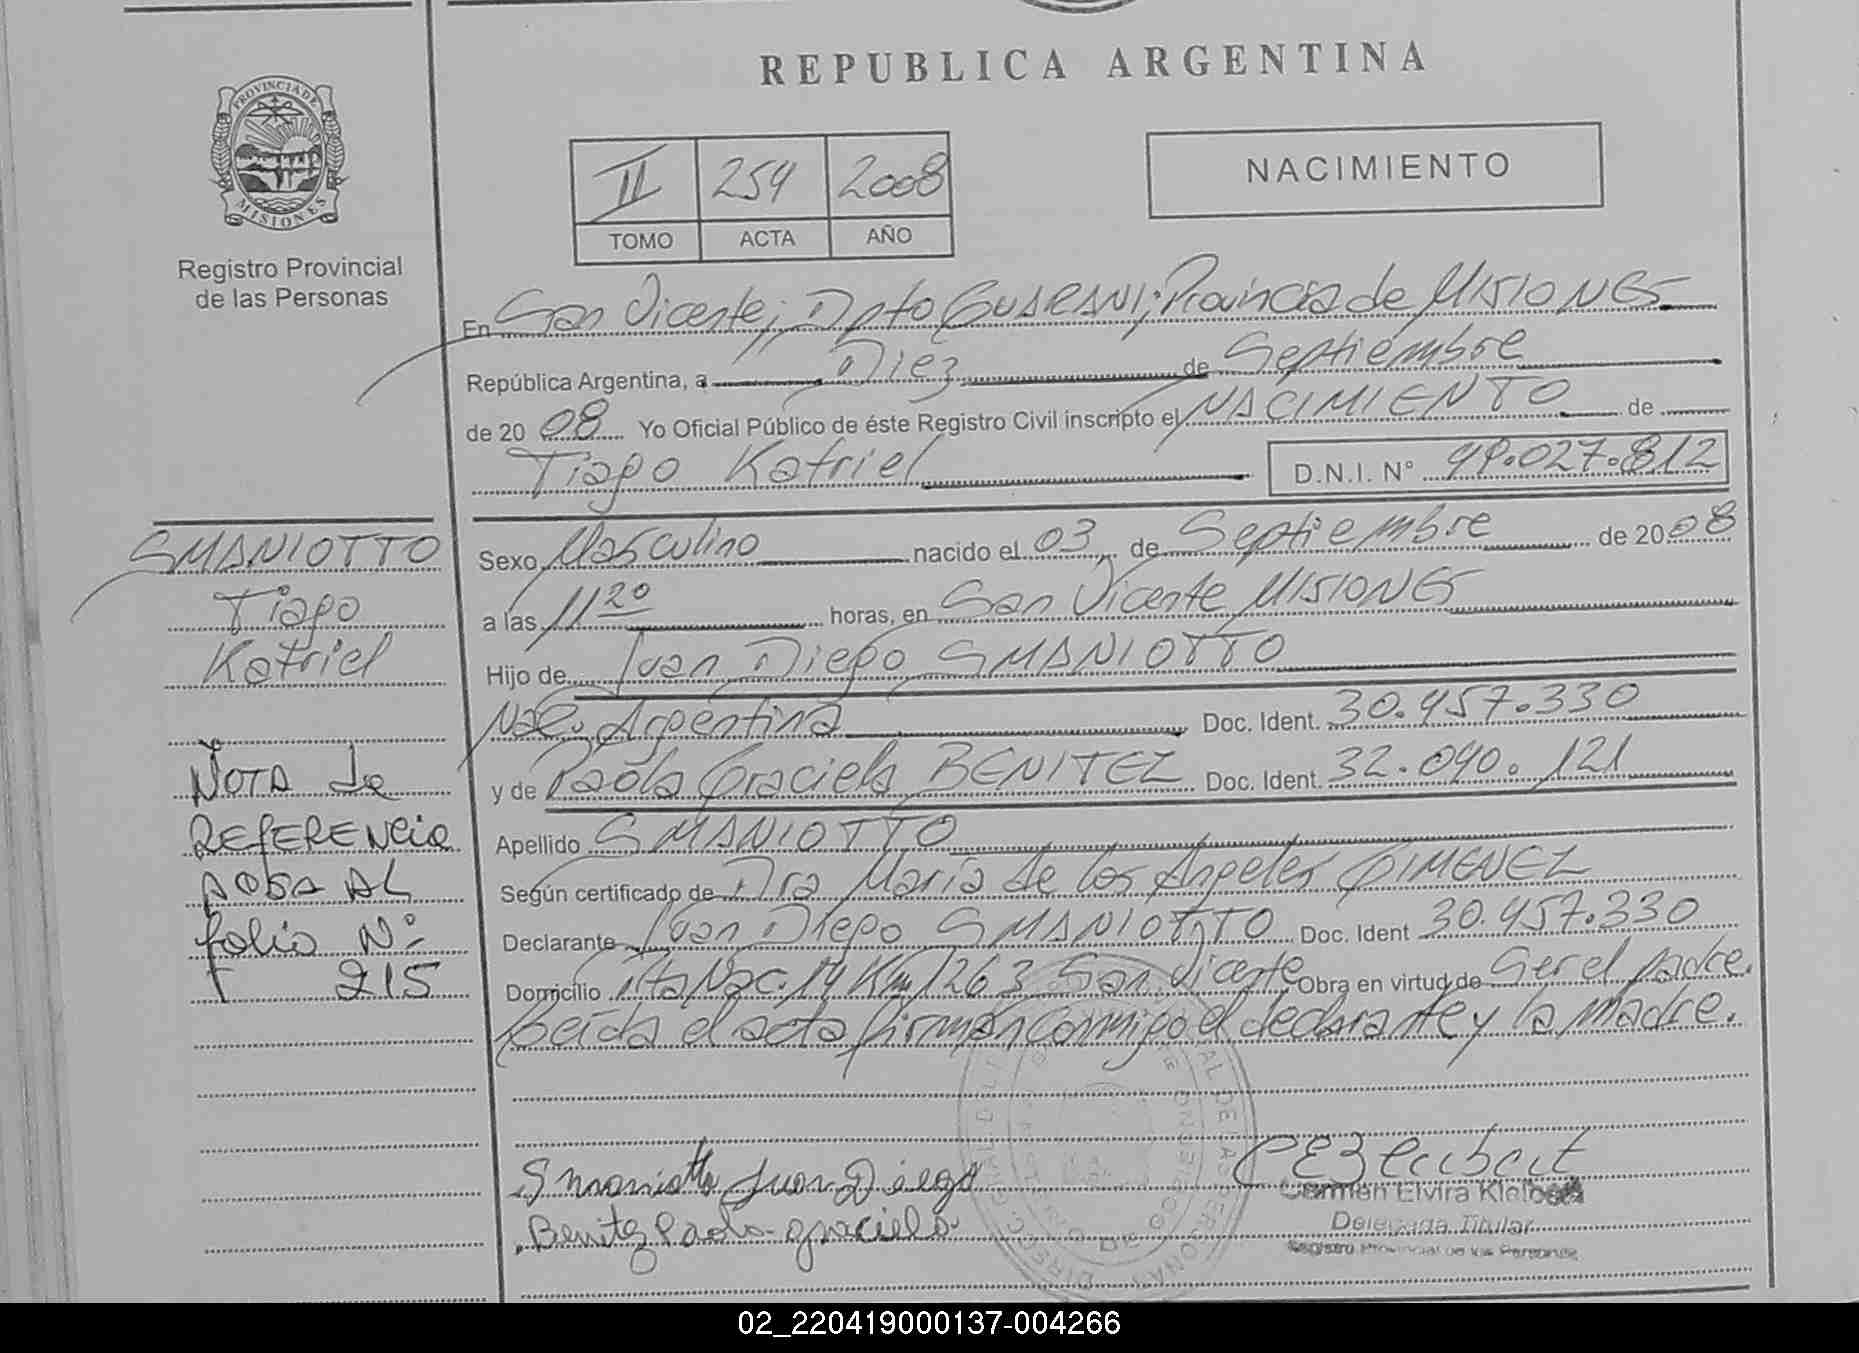 REPUBLICA ARGENTINA
PROVINCIA DE
MISIONES
Registro Provincial
de las Personas
II 254 2008
TOMO ACTA AÑO
NACIMIENTO
En San Vicente; Dpto GUARANI; Provincia de MISIONES
República Argentina, a Diez de Septiembre
de 20 08 Yo Oficial Público de éste Registro Civil inscripto el NACIMIENTO de
Tiago Katriel D.N.I. N° 49.027.812
SMANIOTTO
Tiago
Katriel
Nota de
REFERENCIA
PASA AL
folio N°
215
Sexo Masculino nacido el 03 de Septiembre de 2008
a las 11 20 horas, en San Vicente MISIONES
Hijo de Juan Diego SMANIOTTO
Nac. Argentina Doc. Ident. 30.457.330
y de Paola Graciela BENITEZ Doc. Ident. 32.040.121
Apellido SMANIOTTO
Según certificado de Dra María de los Angeles GIMENEZ
Declarante Juan Diego SMANIOTTO Doc. Ident 30.457.330
Domicilio Rta Nac. 14 Km 1263 San Vicente Obra en virtud de Ser el padre.
Leída el acta firman conmigo el declarante y la madre.
Smaniotto Juan Diego
Benitez Paola graciela
Carmen Elvira
Delegada Titular
Registro Provincial de las Personas
02_220419000137-004266